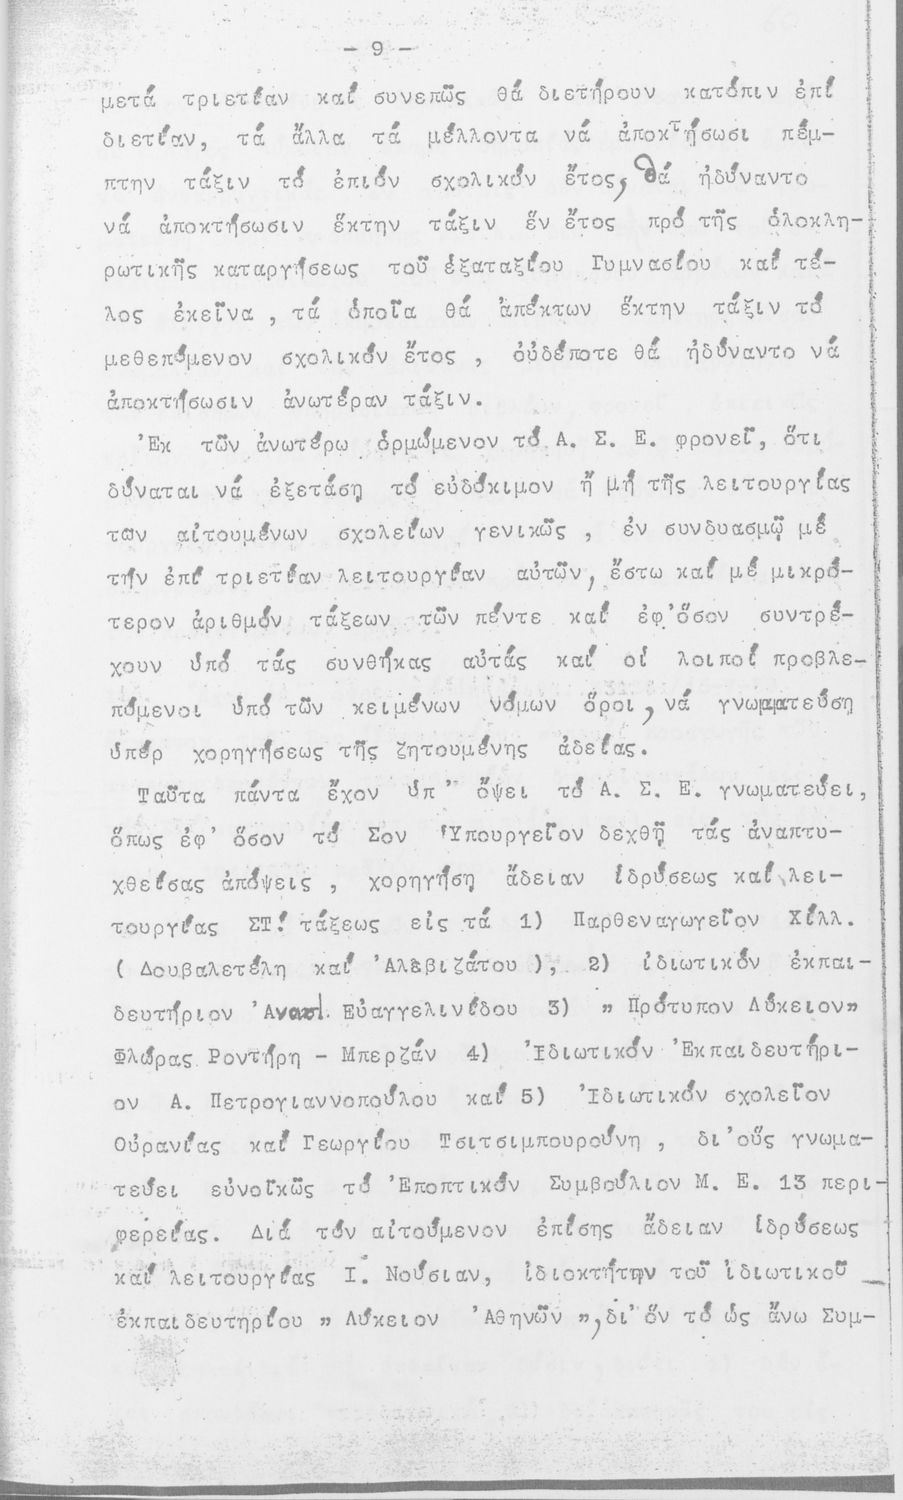 - 9 -
μετά τριετίαν καί συνεπῶς θά διετήρουν κατόπιν ἐπί
διετίαν, τά ἄλλα τά μέλλοντα νά ἀποκτήσωσι πέμ-
πτην τάξιν τό ἐπιόν σχολικόν ἔτος, θά ἠδύναντο
νά ἀποκτήσωσιν ἕκτην τάξιν ἕν ἔτος πρό τῆς ὁλοκλη-
ρωτικῆς καταργήσεως τοῦ ἑξαταξίου Γυμνασίου καί τέ-
λος ἐκεῖνα , τά ὁποῖα θά ἀπέκτων ἕκτην τάξιν τό
μεθεπόμενον σχολικόν ἔτος , οὐδέποτε θά ἠδύναντο νά
ἀποκτήσωσιν ἀνωτέραν τάξιν.
Ἐκ τῶν ἀνωτέρω ὁρμώμενον τό Α. Σ. Ε. φρονεῖ, ὅτι
δύναται νά ἐξετάση τό εὐδόκιμον ἤ μή τῆς λειτουργίας
τῶν αἰτουμένων σχολείων γενικῶς , ἐν συνδυασμῷ μέ
τήν ἐπί τριετίαν λειτουργίαν αὐτῶν, ἔστω καί μέ μικρό-
τερον ἀριθμόν τάξεων τῶν πέντε καί ἐφ' ὅσον συντρέ-
χουν ὑπό τάς συνθήκας αὐτάς καί οἱ λοιποί προβλε-
πόμενοι ὑπό τῶν κειμένων νόμων ὅροι, νά γνωματεύση
ὑπέρ χορηγήσεως τῆς ζητουμένης ἀδείας.
Ταῦτα πάντα ἔχον ὑπ' ὄψει τό Α. Σ. Ε. γνωματεύει,
ὅπως ἐφ' ὅσον τό Σον Ὑπουργεῖον δεχθῆ τάς ἀναπτυ-
χθείσας ἀπόψεις , χορηγήση ἄδειαν ἱδρύσεως καί λει-
τουργίας ΣΤ! τάξεως εἰς τά 1) Παρθεναγωγεῖον Χίλλ.
( Δουβαλετέλη καί Ἀλεβιζάτου ), 2) ἰδιωτικόν ἐκπαι-
δευτήριον Ἀναστ. Εὐαγγελινίδου 3) " Πρότυπον Λύκειον"
Φλώρας Ροντήρη - Μπερζάν 4) Ἰδιωτικόν Ἐκπαιδευτήρι-
ον Α. Πετρογιαννοπούλου καί 5) Ἰδιωτικόν σχολεῖον
Οὐρανίας καί Γεωργίου Τσιτσιμπουρούνη , δι' οὕς γνωμα-
τεύει εὐνοϊκῶς τό Ἐποπτικόν Συμβούλιον Μ. Ε. 13 περι-
φερείας. Διά τόν αἰτούμενον ἐπίσης ἄδειαν ἱδρύσεως
καί λειτουργίας Ι. Νούσιαν, ἰδιοκτήτην τοῦ ἰδιωτικοῦ
ἐκπαιδευτηρίου " Λύκειον Ἀθηνῶν ", δι' ὅν τό ὡς ἄνω Συμ-